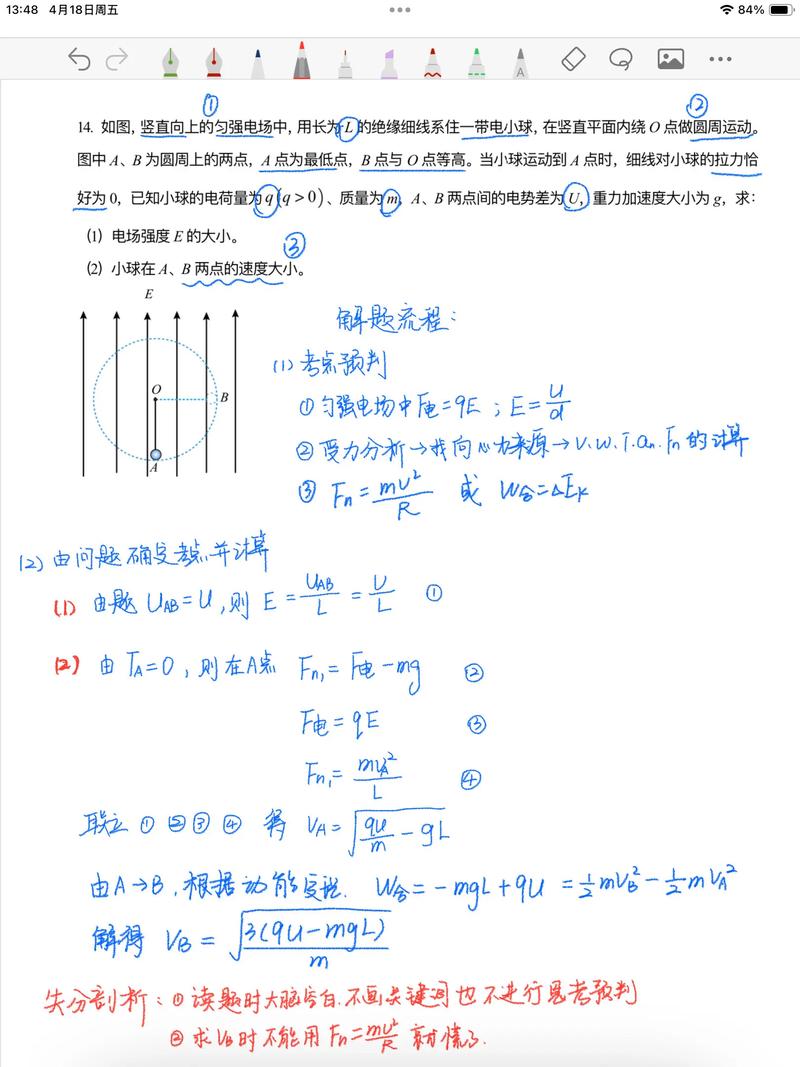 13:48 4月18日周五
84%
① ②
14. 如图，竖直向上的匀强电场中，用长为 L 的绝缘细线系住一带电小球，在竖直平面内绕 O 点做圆周运动。
图中 A、B 为圆周上的两点，A 点为最低点，B 点与 O 点等高。当小球运动到 A 点时，细线对小球的拉力恰
好为 0，已知小球的电荷量为 q（q＞0）、质量为 m，A、B 两点间的电势差为 U，重力加速度大小为 g，求：
（1）电场强度 E 的大小。
③
（2）小球在 A、B 两点的速度大小。
E
O
B
A
解题流程：
(1) 考点预判
①匀强电场中 F电=qE ；E=U/d
②受力分析→找向心力来源→v.w.T.an.Fn 的计算
③ Fn=mv²/R 或 W合=ΔEk
(2) 由问题确定考点并计算
(1) 由题 UAB=U，则 E=UAB/L=U/L ①
(2) 由 TA=0，则在A点 Fn₁=F电-mg ②
F电=qE ③
Fn₁=mvA²/L ④
联立①②③④得 vA=√(qU/m-gL)
由A→B，根据动能定理. W合=-mgL+qU=½mvB²-½mvA²
解得 vB=√(3(qU-mgL)/m)
失分剖析：①读题时大脑空白.不画关键词也不进行思考预判
②求vB时不能用 Fn=mv²/R 就慌了.